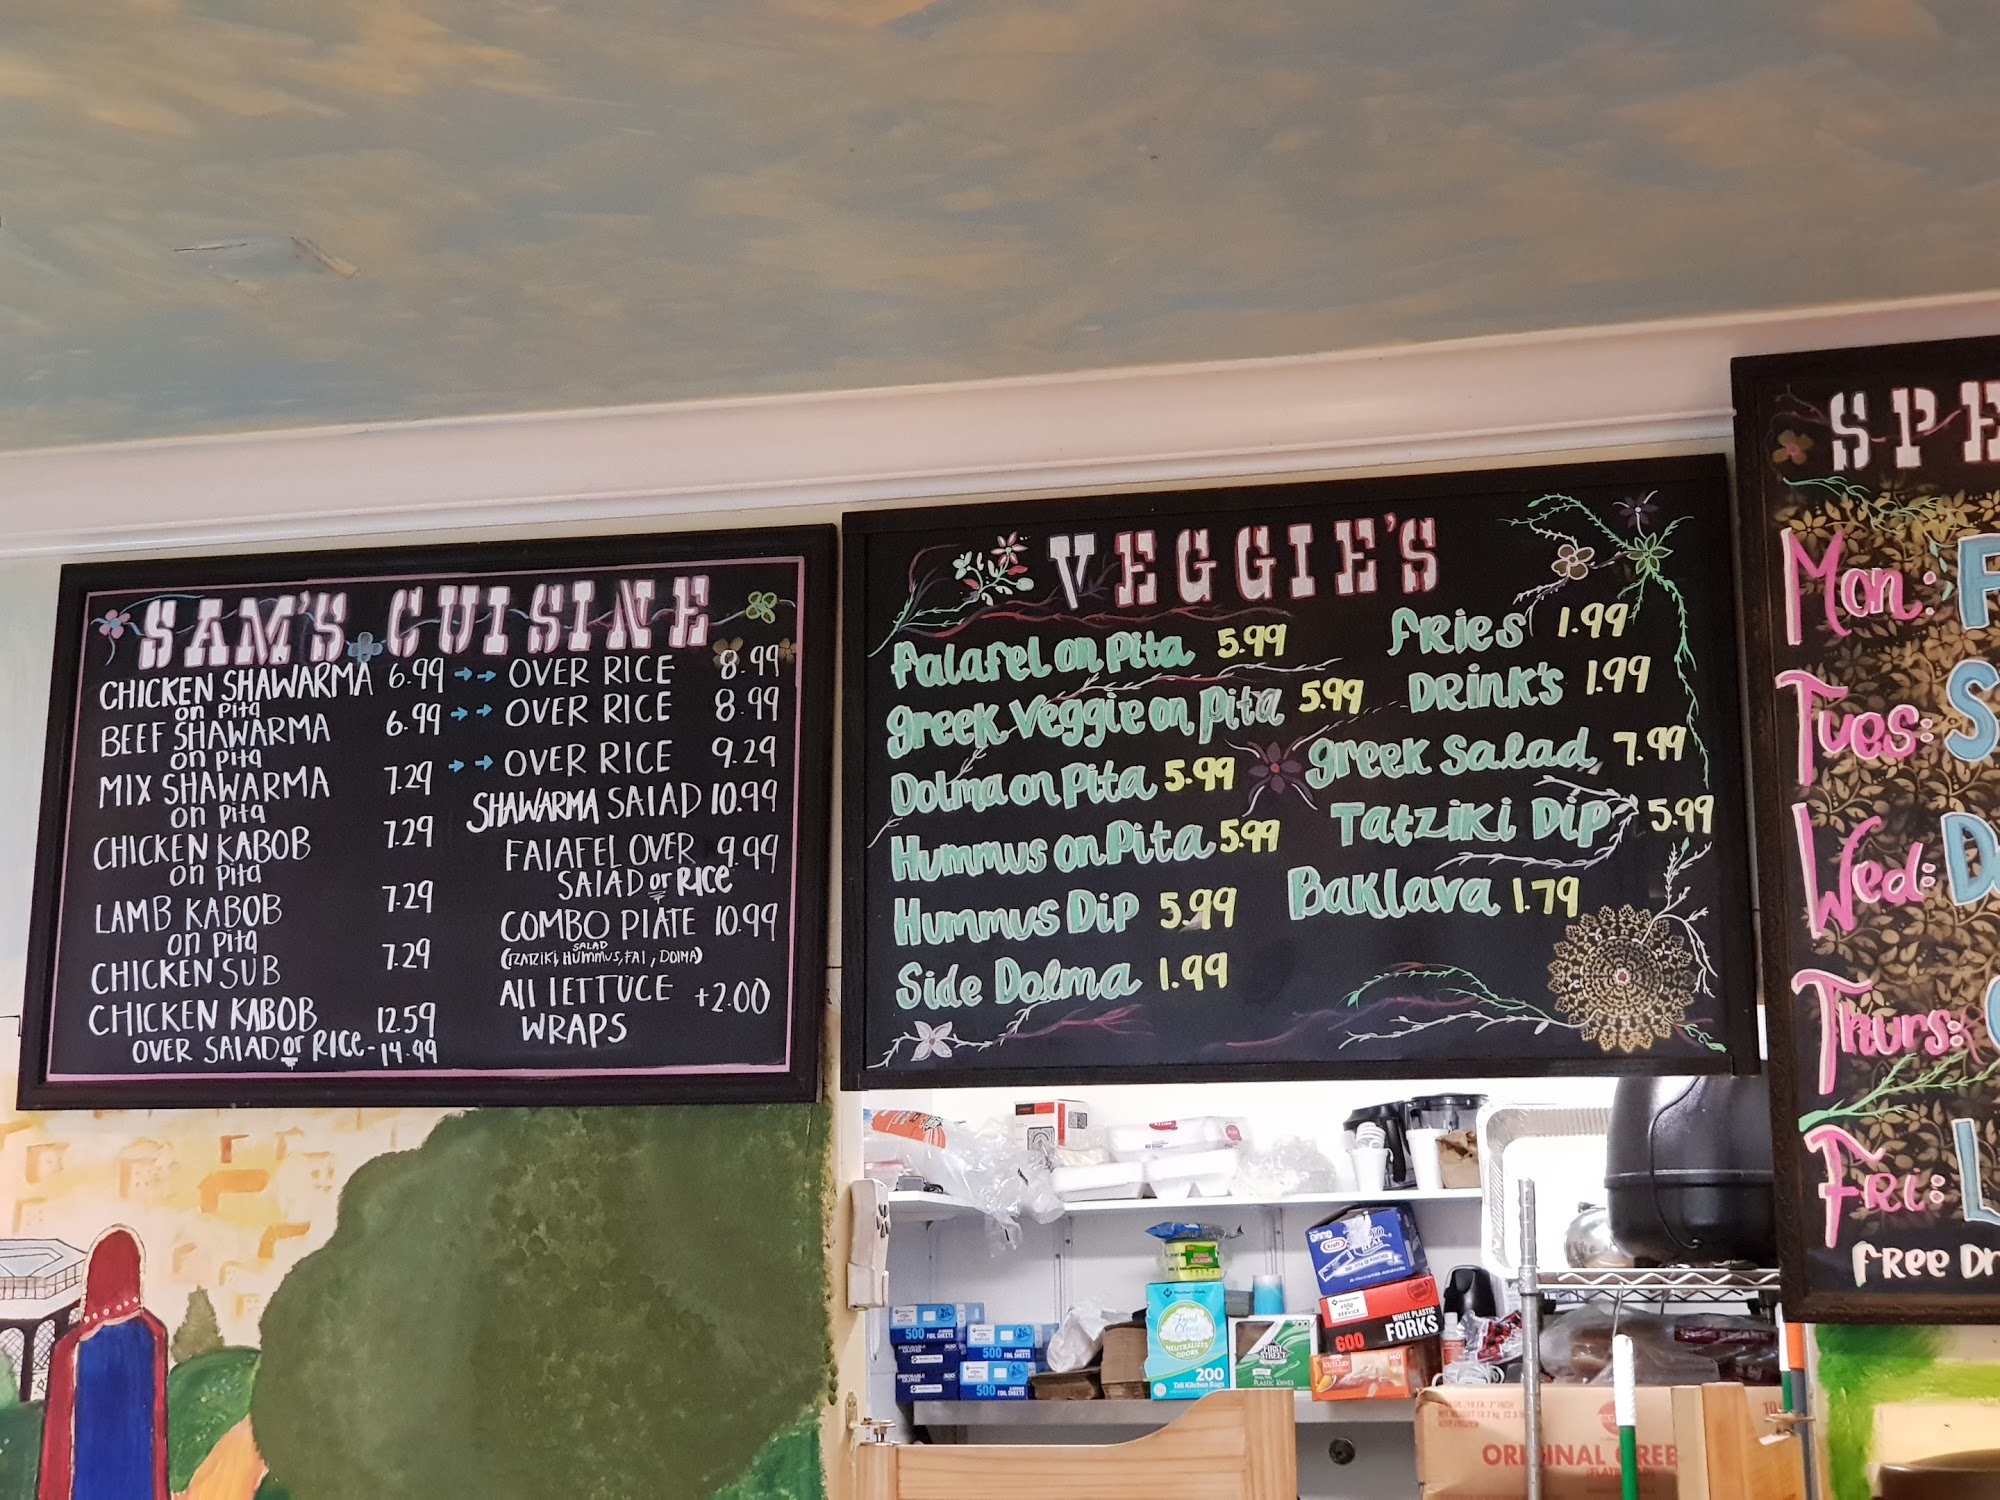 SAM'S CUISINE
CHICKEN SHAWARMA 6.99 →→ OVER RICE 8.99
on pita
BEEF SHAWARMA 6.99 →→ OVER RICE 8.99
on pita
MIX SHAWARMA 7.29 →→ OVER RICE 9.29
on pita
CHICKEN KABOB 7.29
on pita
LAMB KABOB 7.29
on pita
CHICKEN SUB 7.29
CHICKEN KABOB 12.59
OVER SALAD or RICE - 14.99
SHAWARMA SALAD 10.99
FALAFEL OVER 9.99
SALAD or RICE
COMBO PLATE 10.99
SALAD
(TZATZIKI, HUMMUS, FAL, DOLMA)
All LETTUCE +2.00
WRAPS
VEGGIE'S
Falafel on Pita 5.99
Greek Veggie on Pita 5.99
Dolma on Pita 5.99
Hummus on Pita 5.99
Hummus Dip 5.99
Side Dolma 1.99
Fries 1.99
Drink's 1.99
Greek Salad 7.99
Tatziki Dip 5.99
Baklava 1.79
SPE
Mon:
Tues: S
Wed:
Thurs:
Fri: L
Free Dr
500 FOIL SHEETS
500 FOIL SHEETS
500 FOIL SHEETS
NEUTRALIZES ODORS
200
Tall Kitchen Bags
FIRST STREET
PLASTIC KNIVES
Kraft
600 WHITE PLASTIC FORKS